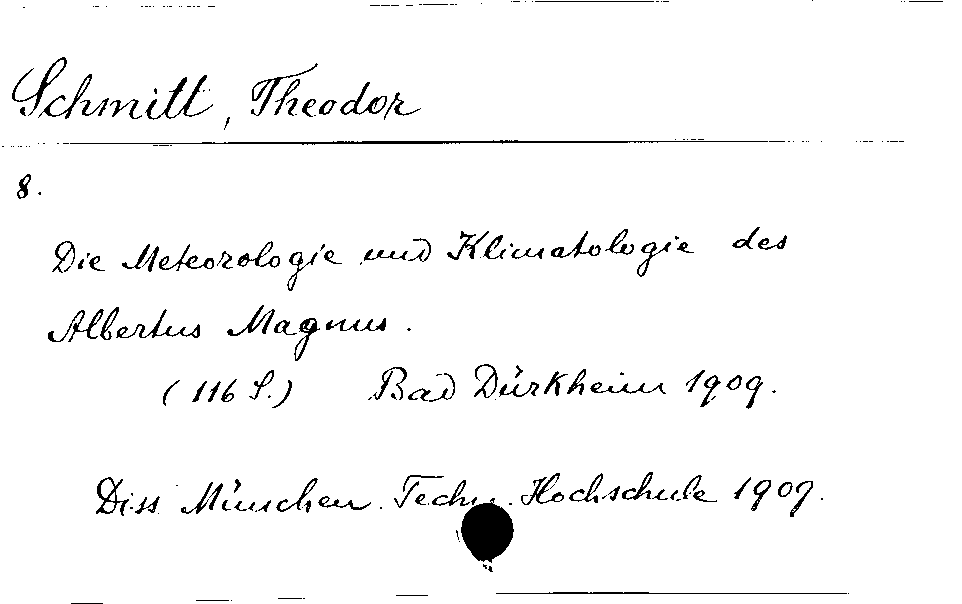 Schmitt, Theodor
8.
Die Meteorologie und Klimatologie des
Albertus Magnus.
(116 S.) Bad Dürkheim 1909.
Diss. München. Techn. Hochschule 1909.